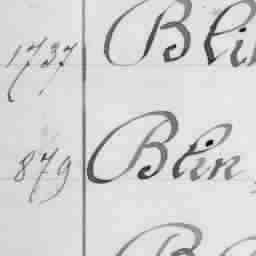 1737 Bli
879 Blin